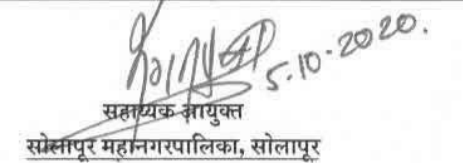 5.10.2020.
सहाय्यक आयुक्त
सोलापूर महानगरपालिका, सोलापूर